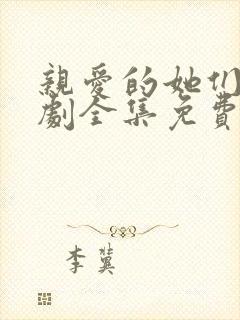 親愛的她们
劇全集免費
李冀